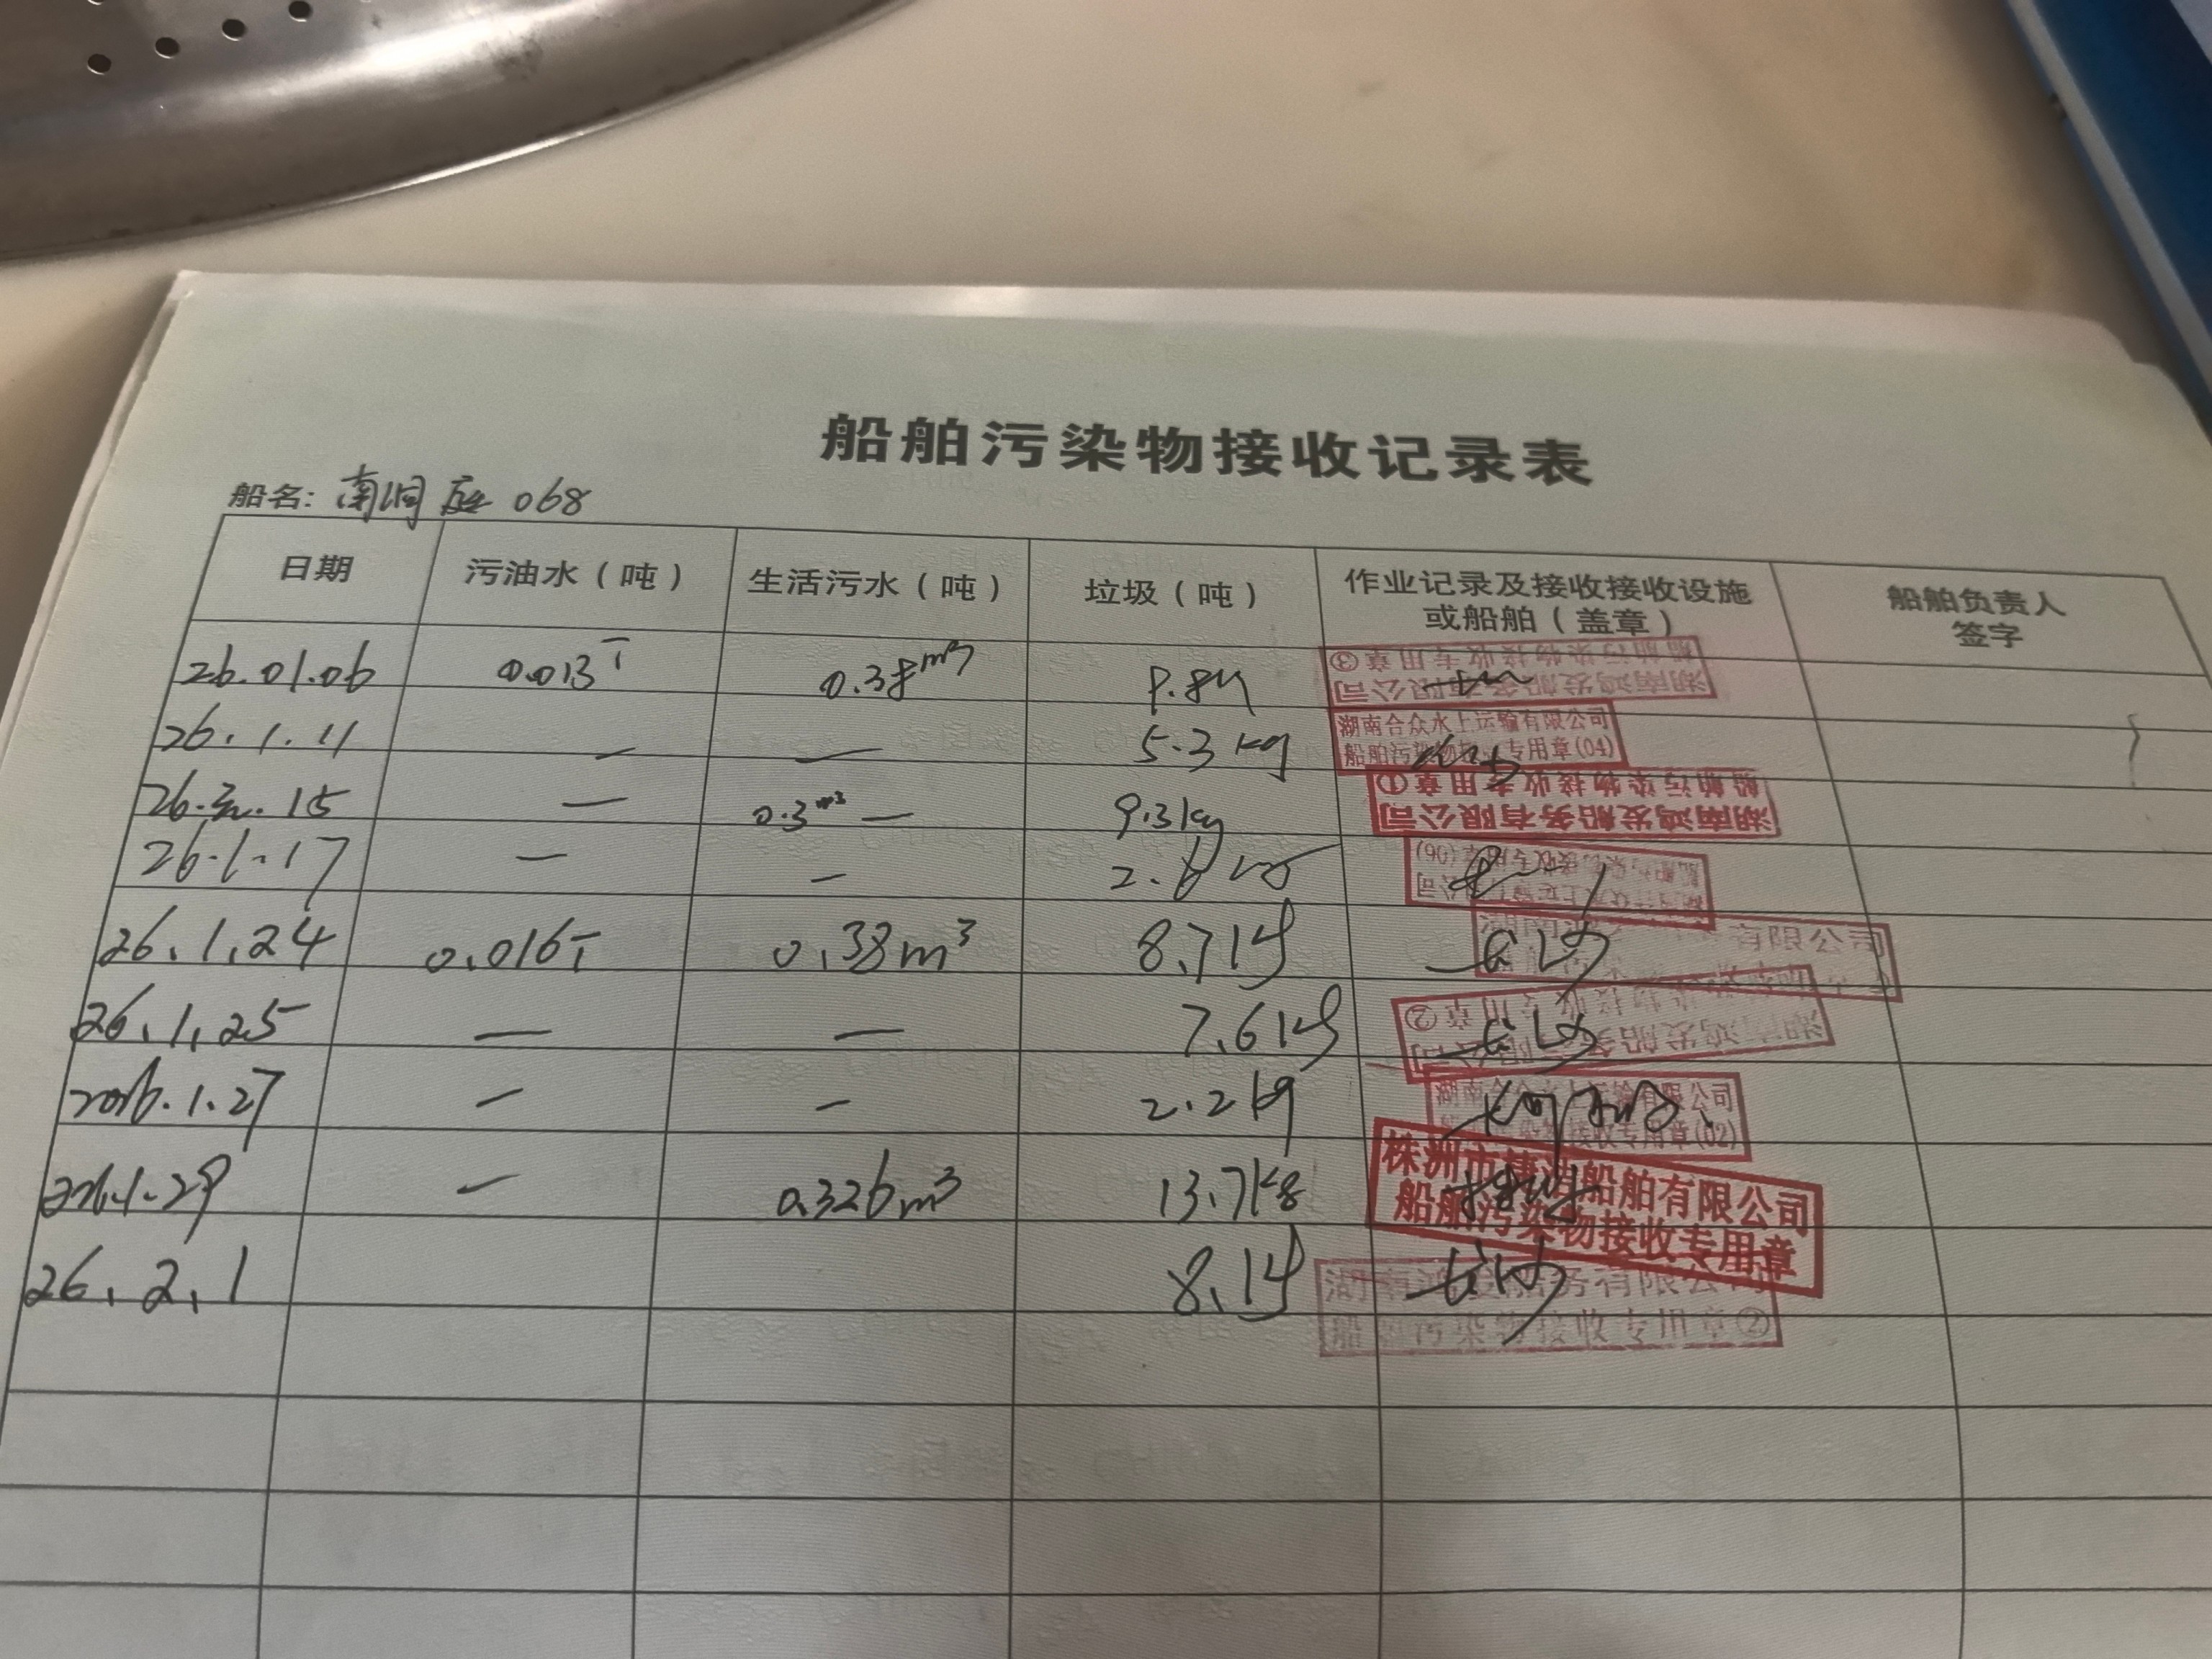 船舶污染物接收记录表
船名: 南洞庭 068
日期 污油水（吨） 生活污水（吨） 垃圾（吨） 作业记录及接收接收设施或船舶（盖章） 船舶负责人签字
26.01.06 0.013T 0.38m³ 湖南鸿发船务有限公司 船舶污染物接收专用章③
26.1.11 — — 5.3kg 湖南合众水上运输有限公司 船舶污染物接收专用章(04)
26. 15 — 0.3m³ — 9.3kg 湖南鸿发船务有限公司 船舶污染物接收专用章①
26.1.17 — —
26.1.24 0.016T 0.38m³ 8.7kg 长沙 有限公司
26.1.25 — — 7.6kg 长沙 湖南鸿发船务有限公司 船舶污染物接收专用章②
2026.1.27 — — 2.2kg 运输有限公司 接收专用章(02)
2026.1.29 — 0.326m³ 13.7kg 株洲市 船舶有限公司 船舶污染物接收专用章
26.2.1 8.1kg 长沙 湖南鸿发船务有限公司 船舶污染物接收专用章②